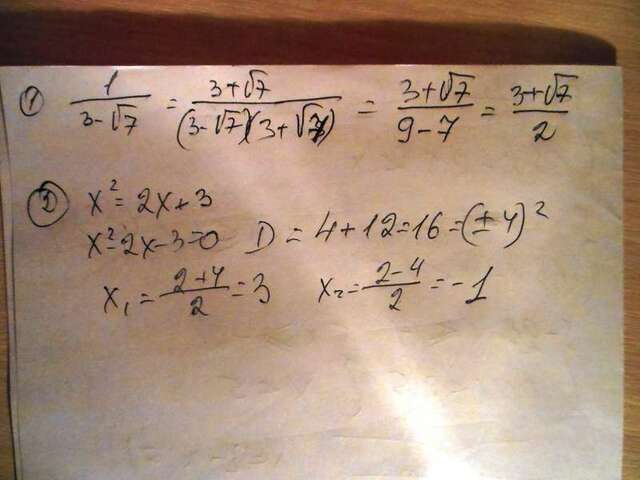 ① 1/(3-√7) = (3+√7)/((3-√7)(3+√7)) = (3+√7)/(9-7) = (3+√7)/2
② x² = 2x+3
x²-2x-3=0 D = 4+12=16=(±4)²
x₁ = (2+4)/2 = 3 x₂ = (2-4)/2 = -1